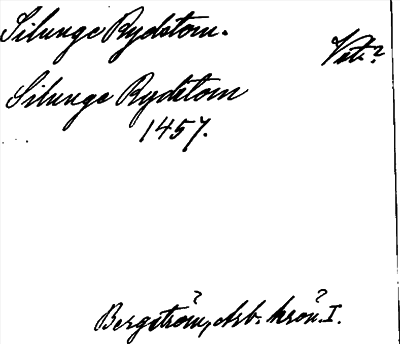 Silunge Rydetom.
Vet.?
Silunge Rydetom
1457.
Bergström, Arb. krön. I.